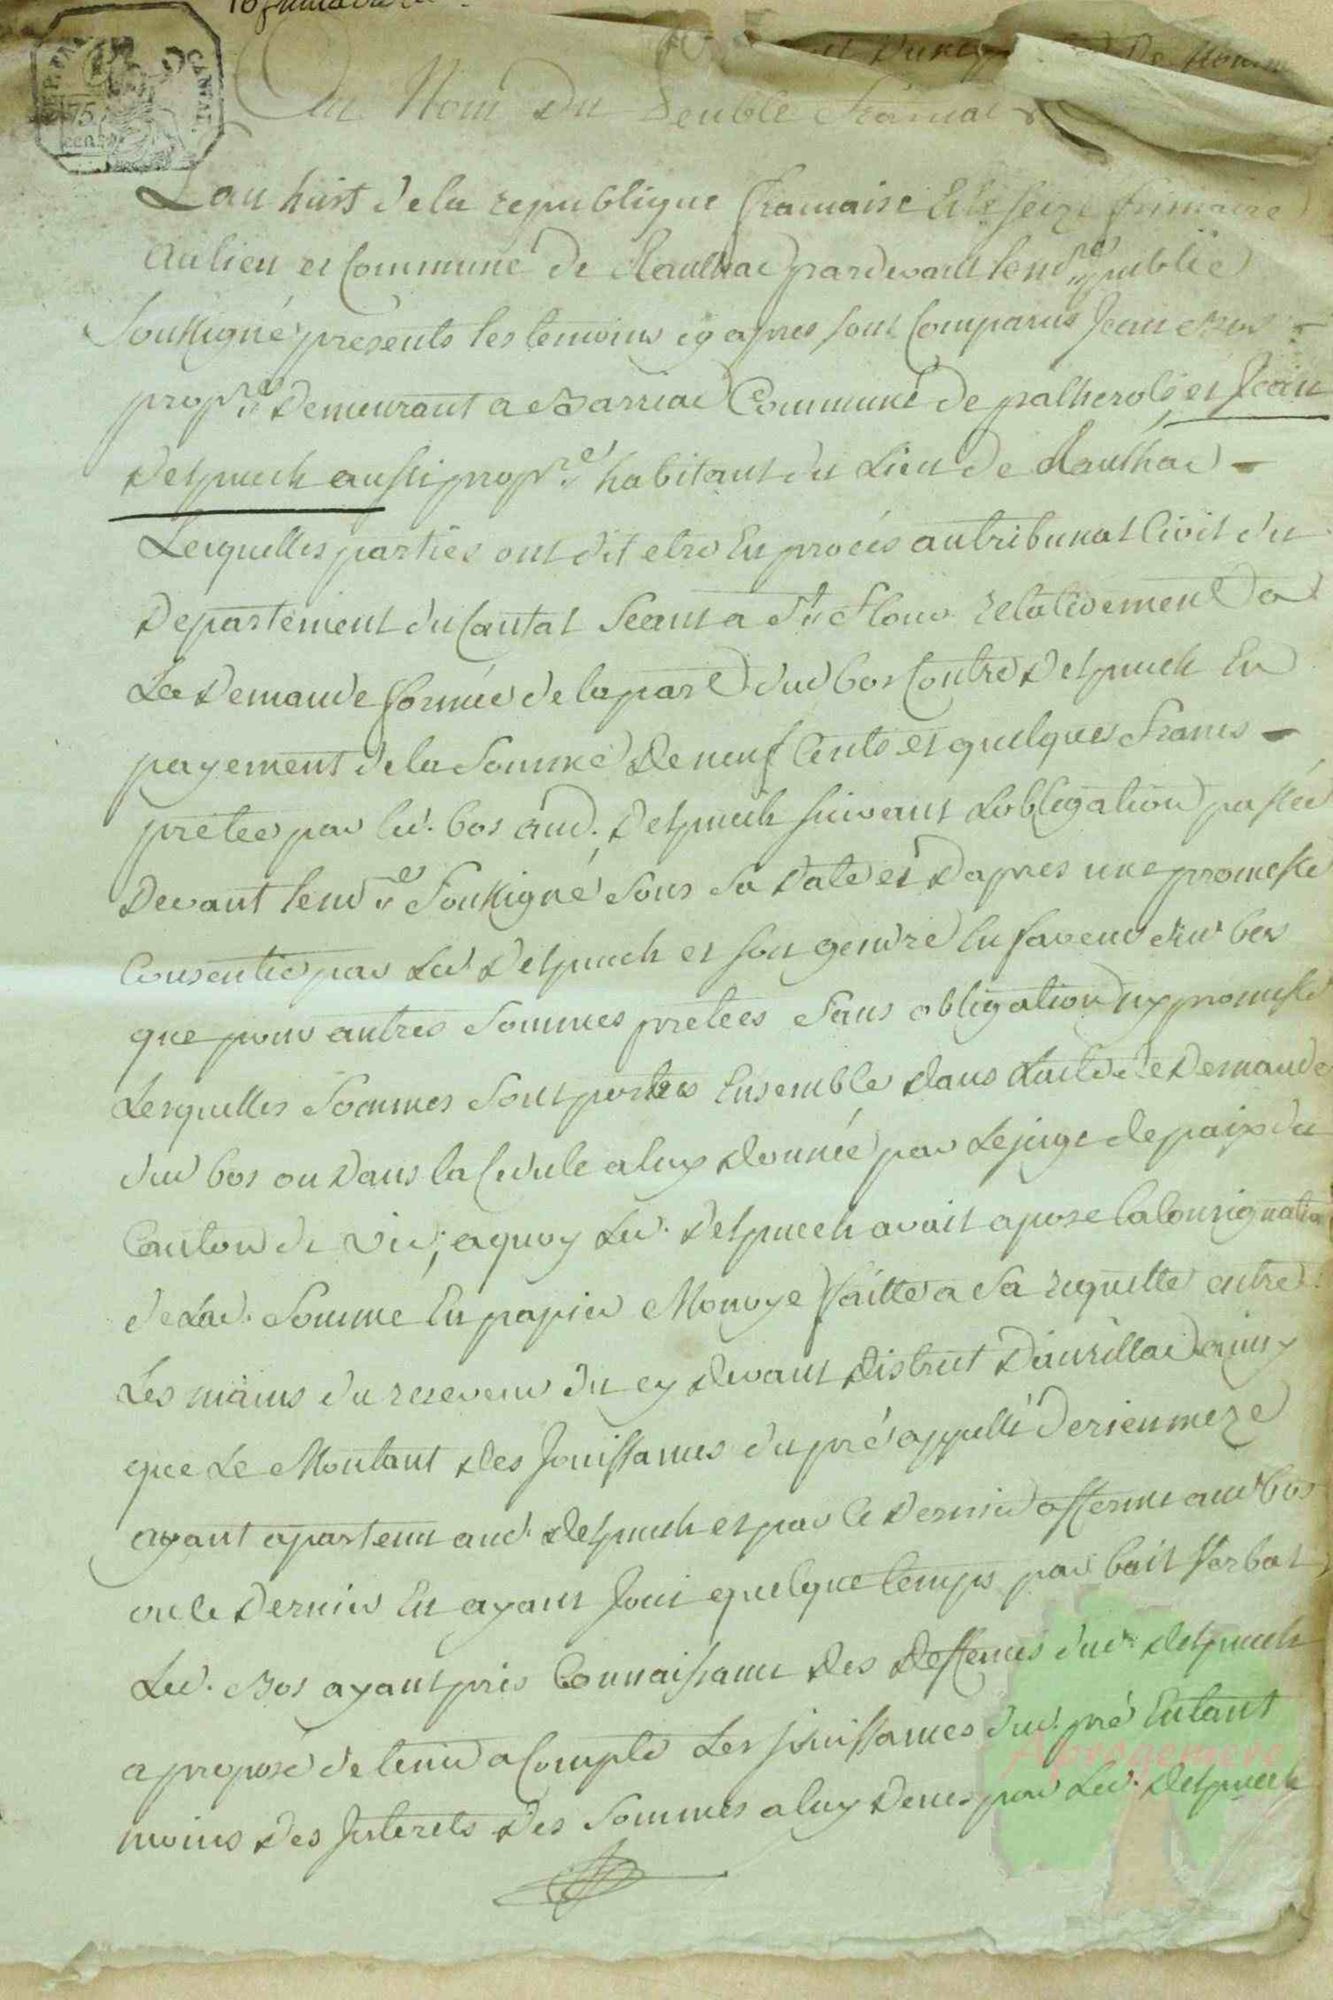 16 frimaire
Au Nom Du Peuple francais
DEP. DU CANTAL
75
cent
Lan huit de la republique francaise Et le seize frimaire
au lieu et Commune de Raulhac pardevant le not.re public
soussigné presents les temoins cy apres sont Comparus Jean Bos
prop.re Demeurant a Barriac Commune de palherols et Jean
Delpuech aussi prop.re habitant du Lieu de Raulhac
Lesquelles parties ont dit etre En procés au tribunal Civil du
Departement du Cantal Seant a St. flour relativement a
La Demande formée de la part dud bos Contre Delpuech En
payement de la Somme De neuf Cents et quelques francs
pretee par led. bos aud. Delpuech suivant Lobligation passée
Devant le not.re Soussigné sous sa Date et Dapres une promesse
Consentie par Led Delpuech et son gendre En faveur dud bos
que pour autres Sommes pretées sans obligation ny promesse
Lesquelles Sommes sont portées Ensemble dans Lacte de Demande
dud bos ou Dans la Cedule a luy donnée par Le juge de paix du
Canton de vic; a quoy Led. Delpuech avait aposé la Consignation
de Lad. Somme En papier Monoye faitte a sa requette entre
Les mains du receveur du cy devant District Daurillac ainsy
que Le Montant des Jouissances du pré appellé
ayant apartenu aud. delpuech et par ce Dernier afferme aud bos
ou ce Dernier En ayant Joui quelque temps par bail verbal
Led. Bos ayant pris Connaissance des deffences dud. delpuech
a proposé de tenir a Compte Les jouissances dud. pré Entant
moins des Interets des Sommes a luy Dues par Led. Delpuech
Aprogemere